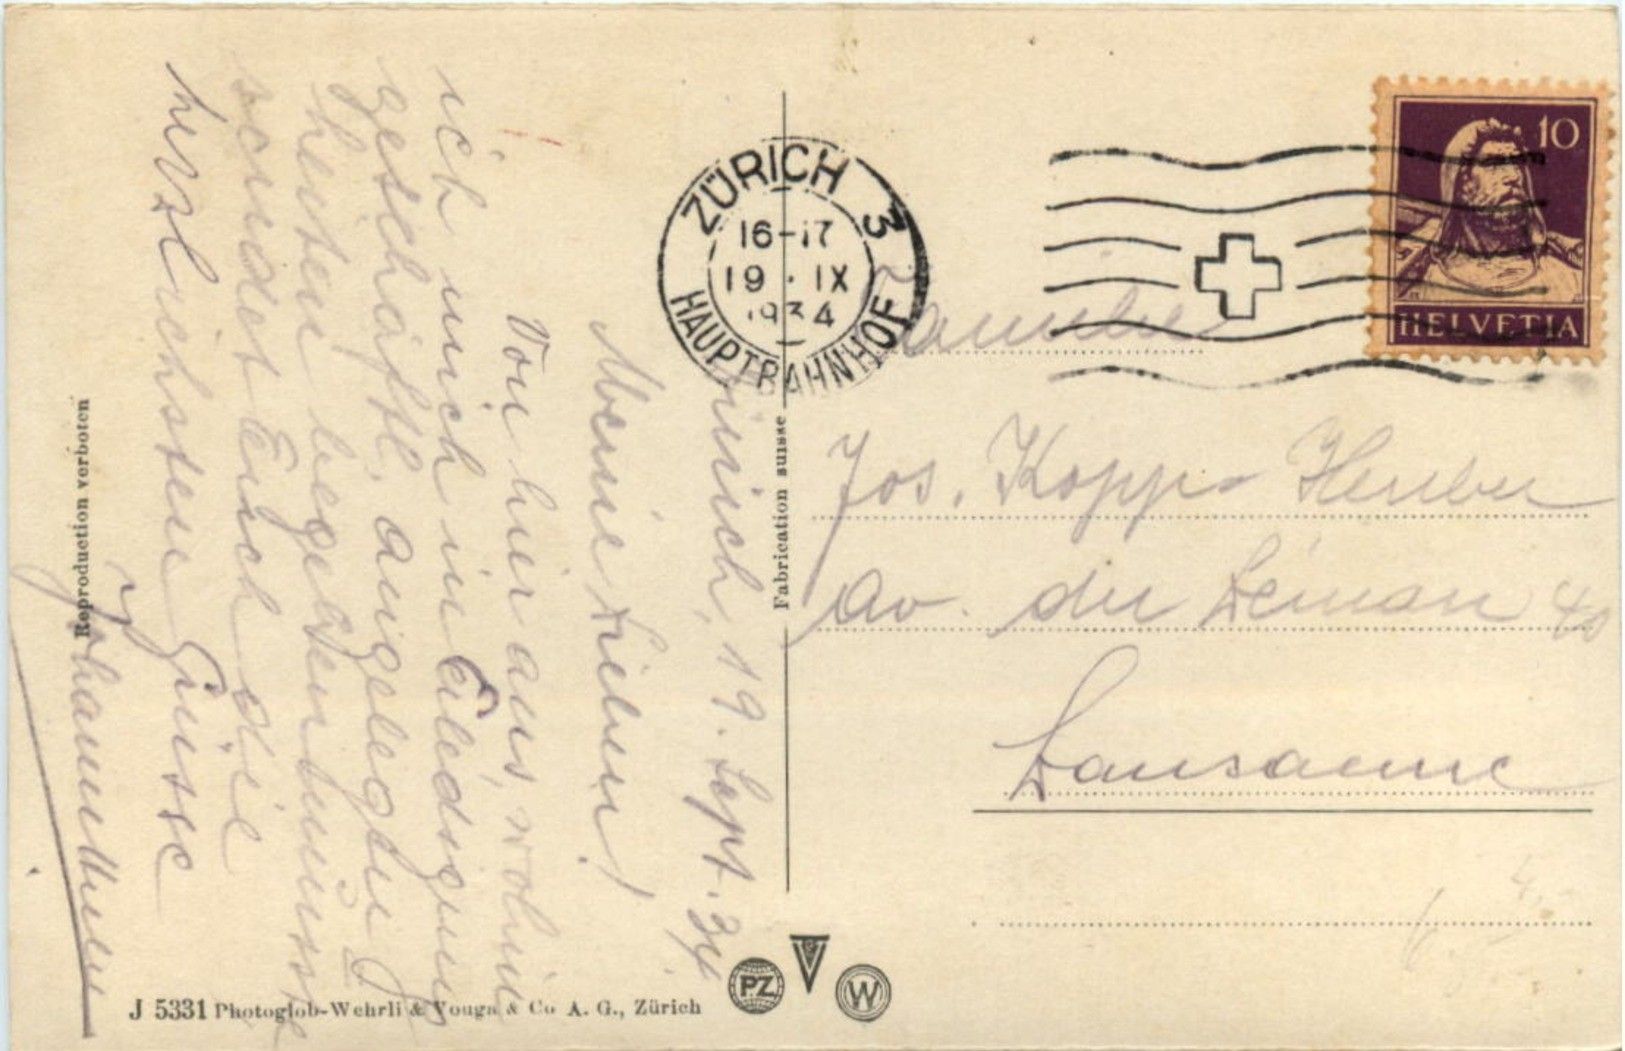 Zürich, 19. Sept. 34.
Meine Lieben!
Von hier aus, wohin
ich mich in Erledigung
geschäftl. Angelegen
heiten begeben musste
sendet Euch die
herzlichsten Grüsse
Familie
Jos. Kopp-Huber
Av. du Léman 40
Lausanne
ZÜRICH 3
16-17
19.IX
1934
HAUPTBAHNHOF
10
HELVETIA
Fabrication suisse
Reproduction verboten
J 5331 Photoglob-Wehrli & Vouga & Co A. G., Zürich
PZ
V
W